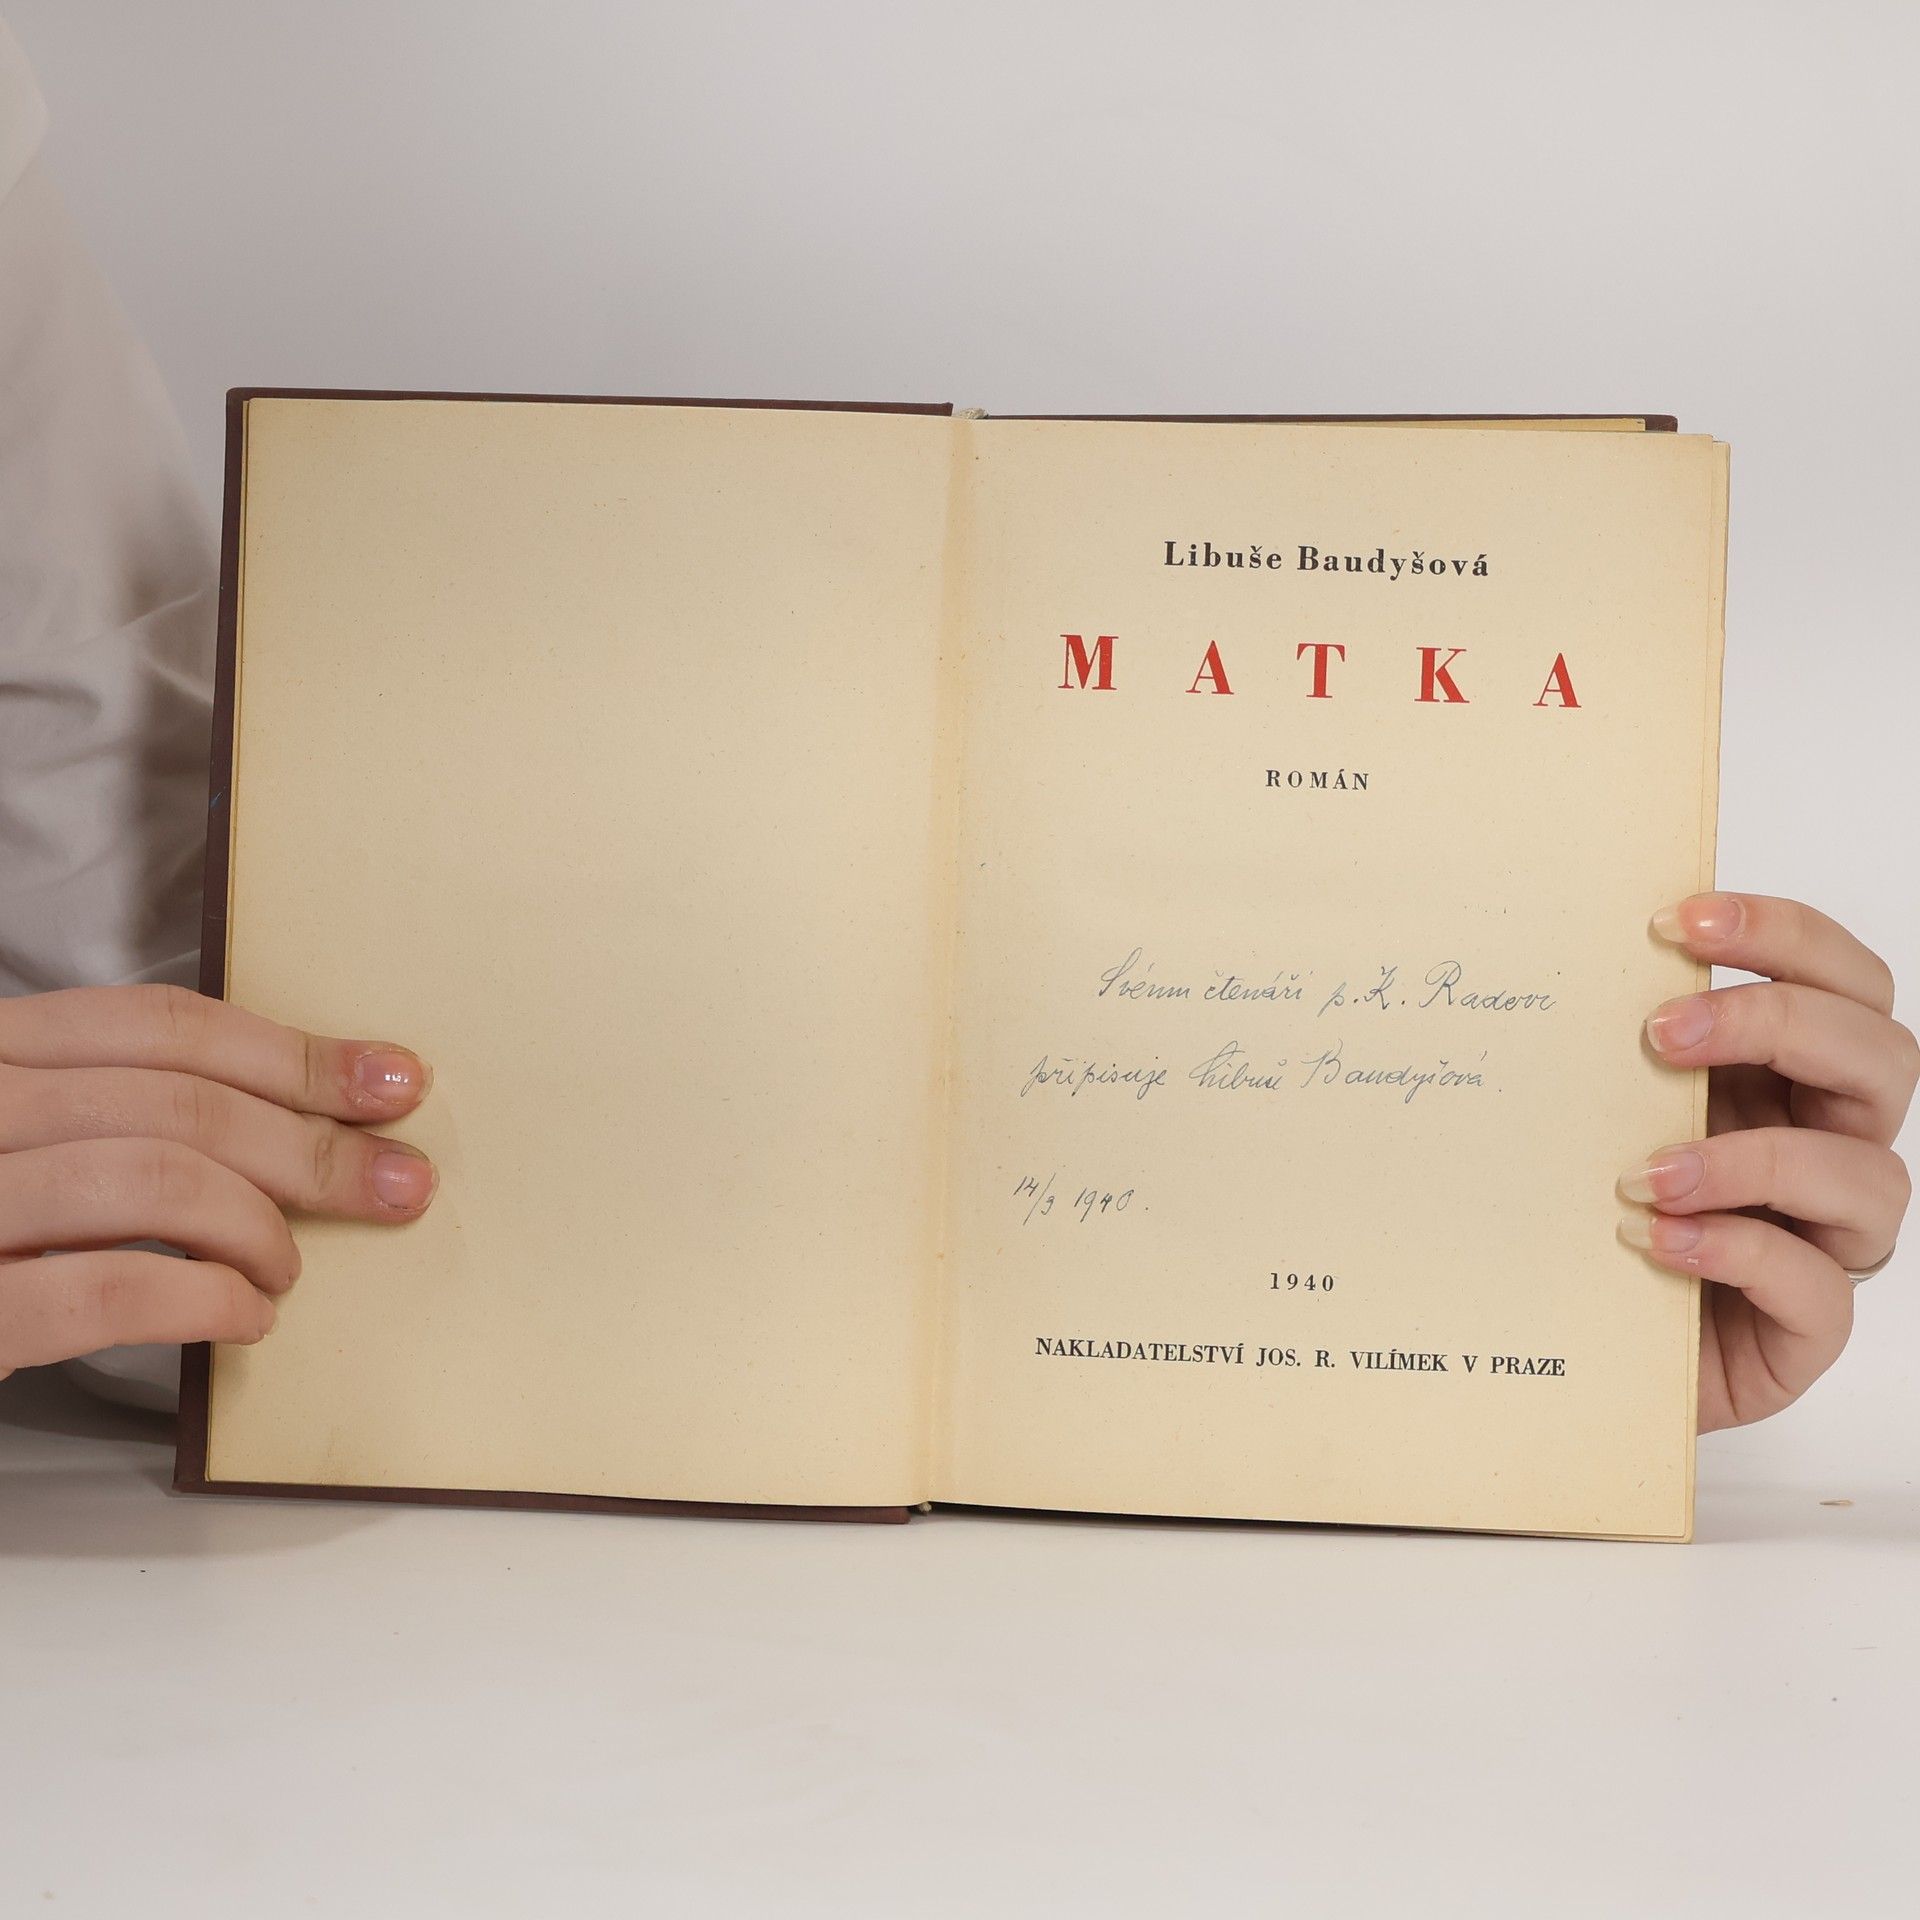 Libuše Baudyšová
MATKA
ROMÁN
Svému čtenáři p. K. Radovi
připisuje Libuše Baudyšová.
14/3 1940.
1940
NAKLADATELSTVÍ JOS. R. VILÍMEK V PRAZE